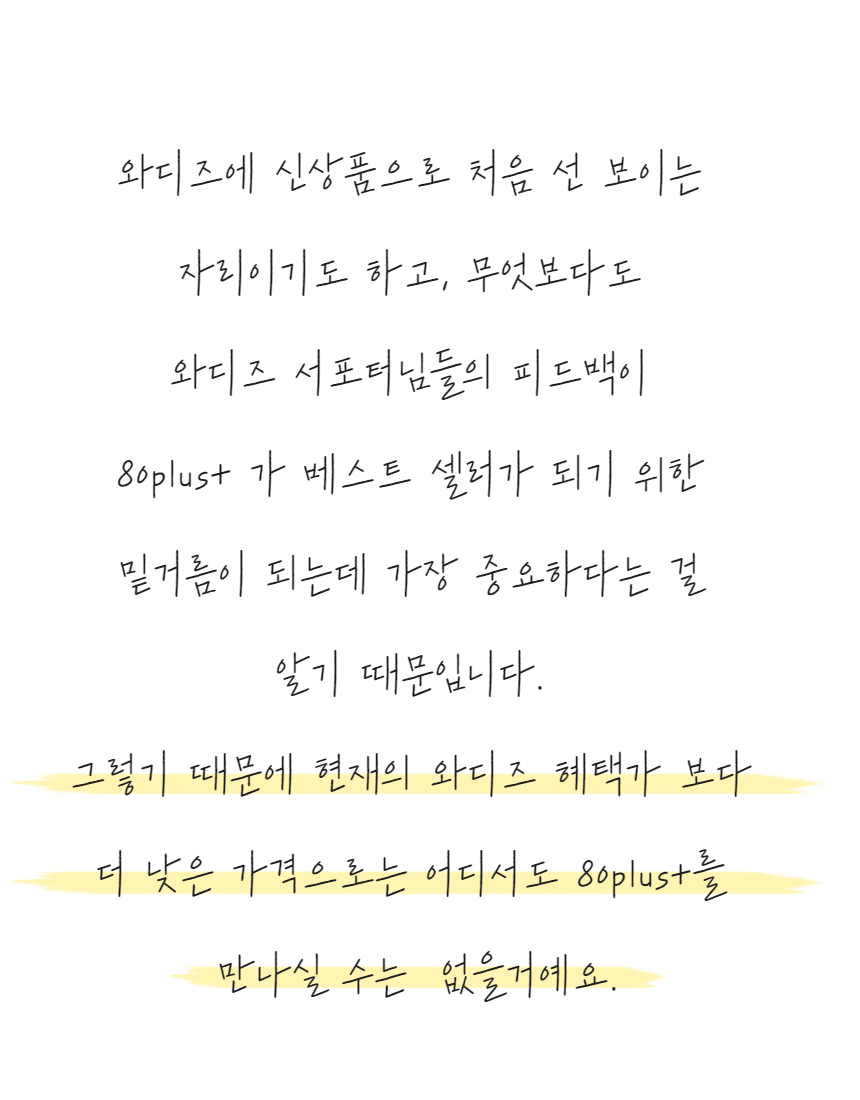 와디즈에 신상품으로 처음 선 보이는
자리이기도 하고, 무엇보다도
와디즈 서포터님들의 피드백이
80plus+ 가 베스트 셀러가 되기 위한
밑거름이 되는데 가장 중요하다는 걸
알기 때문입니다.
그렇기 때문에 현재의 와디즈 혜택가 보다
더 낮은 가격으로는 어디서도 80plus+를
만나실 수는 없을거예요.